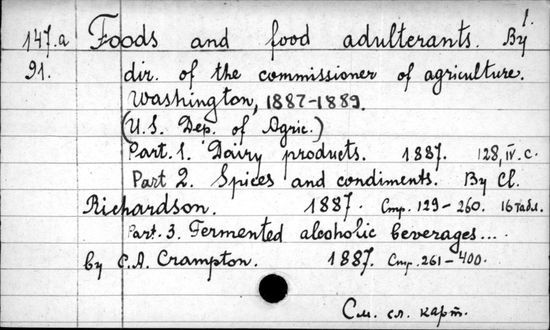 1.
147.a Foods and food adulterants. By
91. dir. of the commissioner of agriculture.
Washington, 1887-1889.
(U.S. Dep. of Agric.)
Part. 1. Dairy products. 1887. 128, IV. c.
Part 2. Spices and condiments. By Cl.
Richardson. 1887. Стр. 129-260. 16 табл.
Part. 3. Fermented alcoholic beverages...
by C.A. Crampton. 1887. Стр. 261-400.
См. сл. карт.